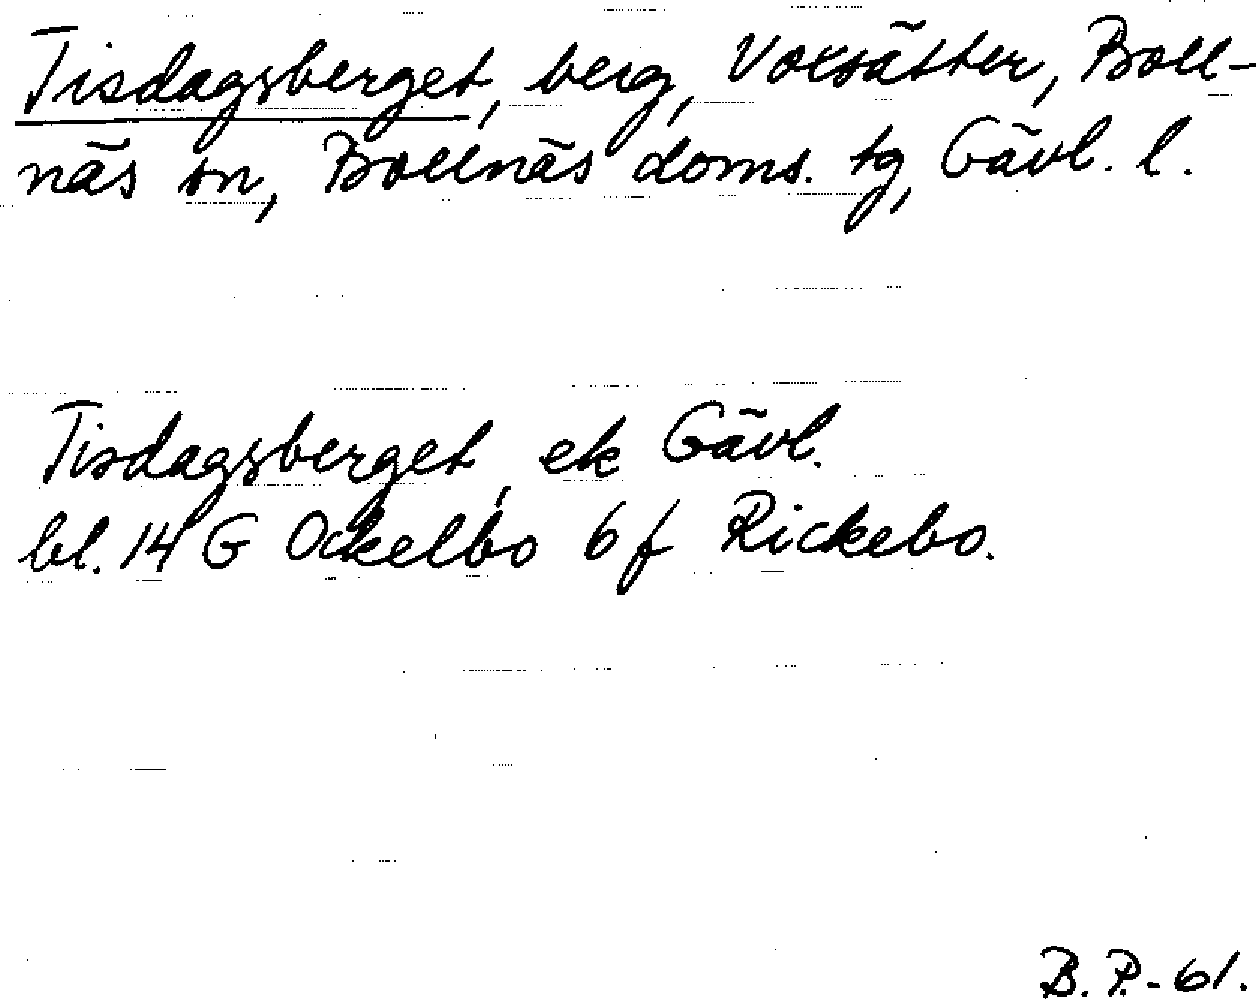 Tisdagsberget, berg, Voxsätter, Boll-
näs sn, Bollnäs doms. tg, Gävl. l.
Tisdagsberget, ek Gävl.
bl. 14 G Ockelbo 6 f Rickebo.
B. P. - 61.